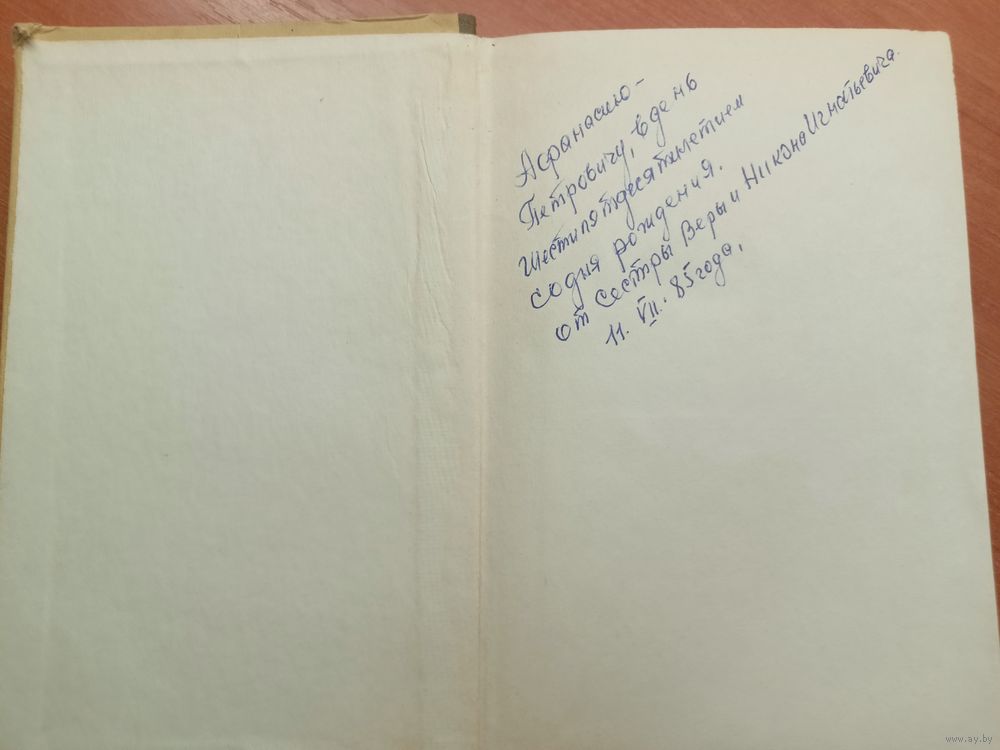 Афанасию-
Петровичу, в день
шестипятдесятилетием
со дня рождения.
от сестры Веры и Никона Игнатьевича.
11. VII. 85 года.
www.ay.by